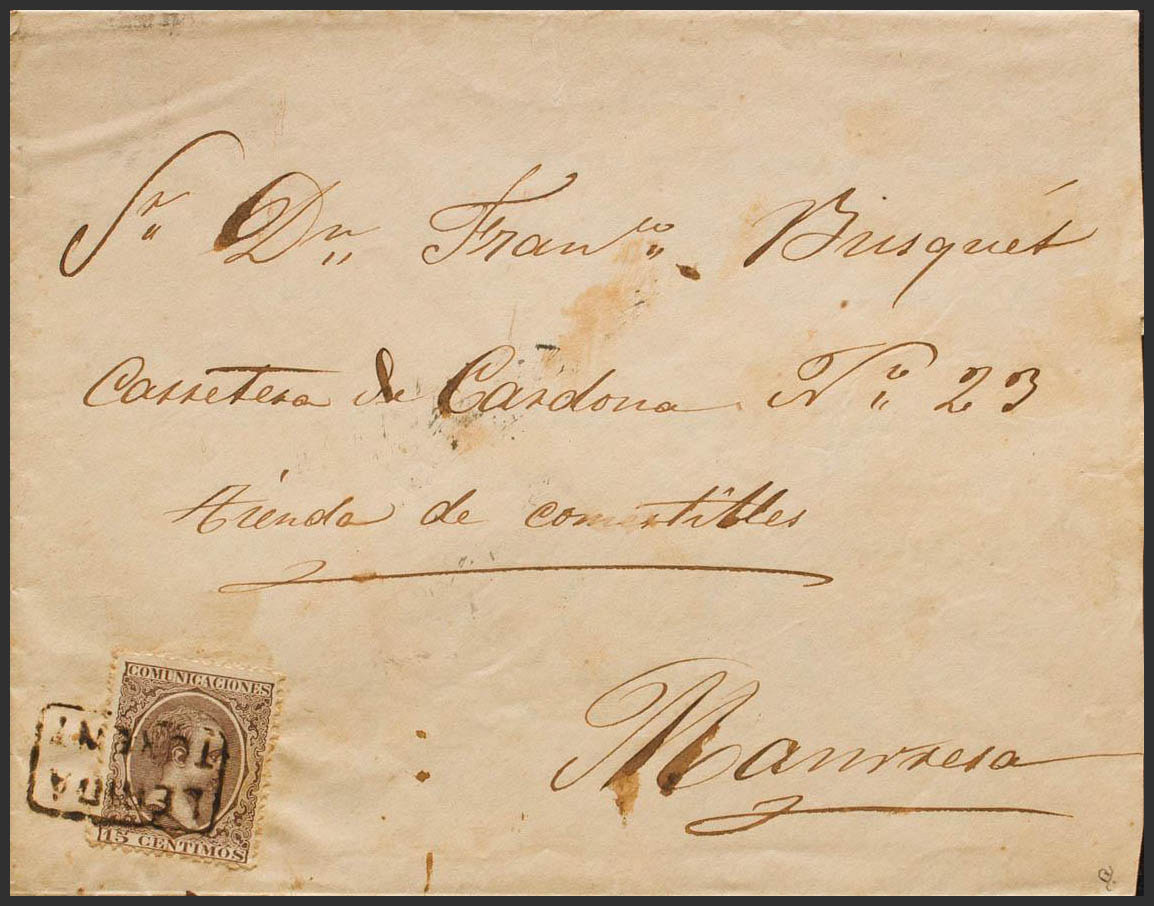 Sr. Dn. Franco. Busquét
Carretera de Cardona No. 23
tienda de comestibles
Manrresa
COMUNICACIONES
15 CENTIMOS